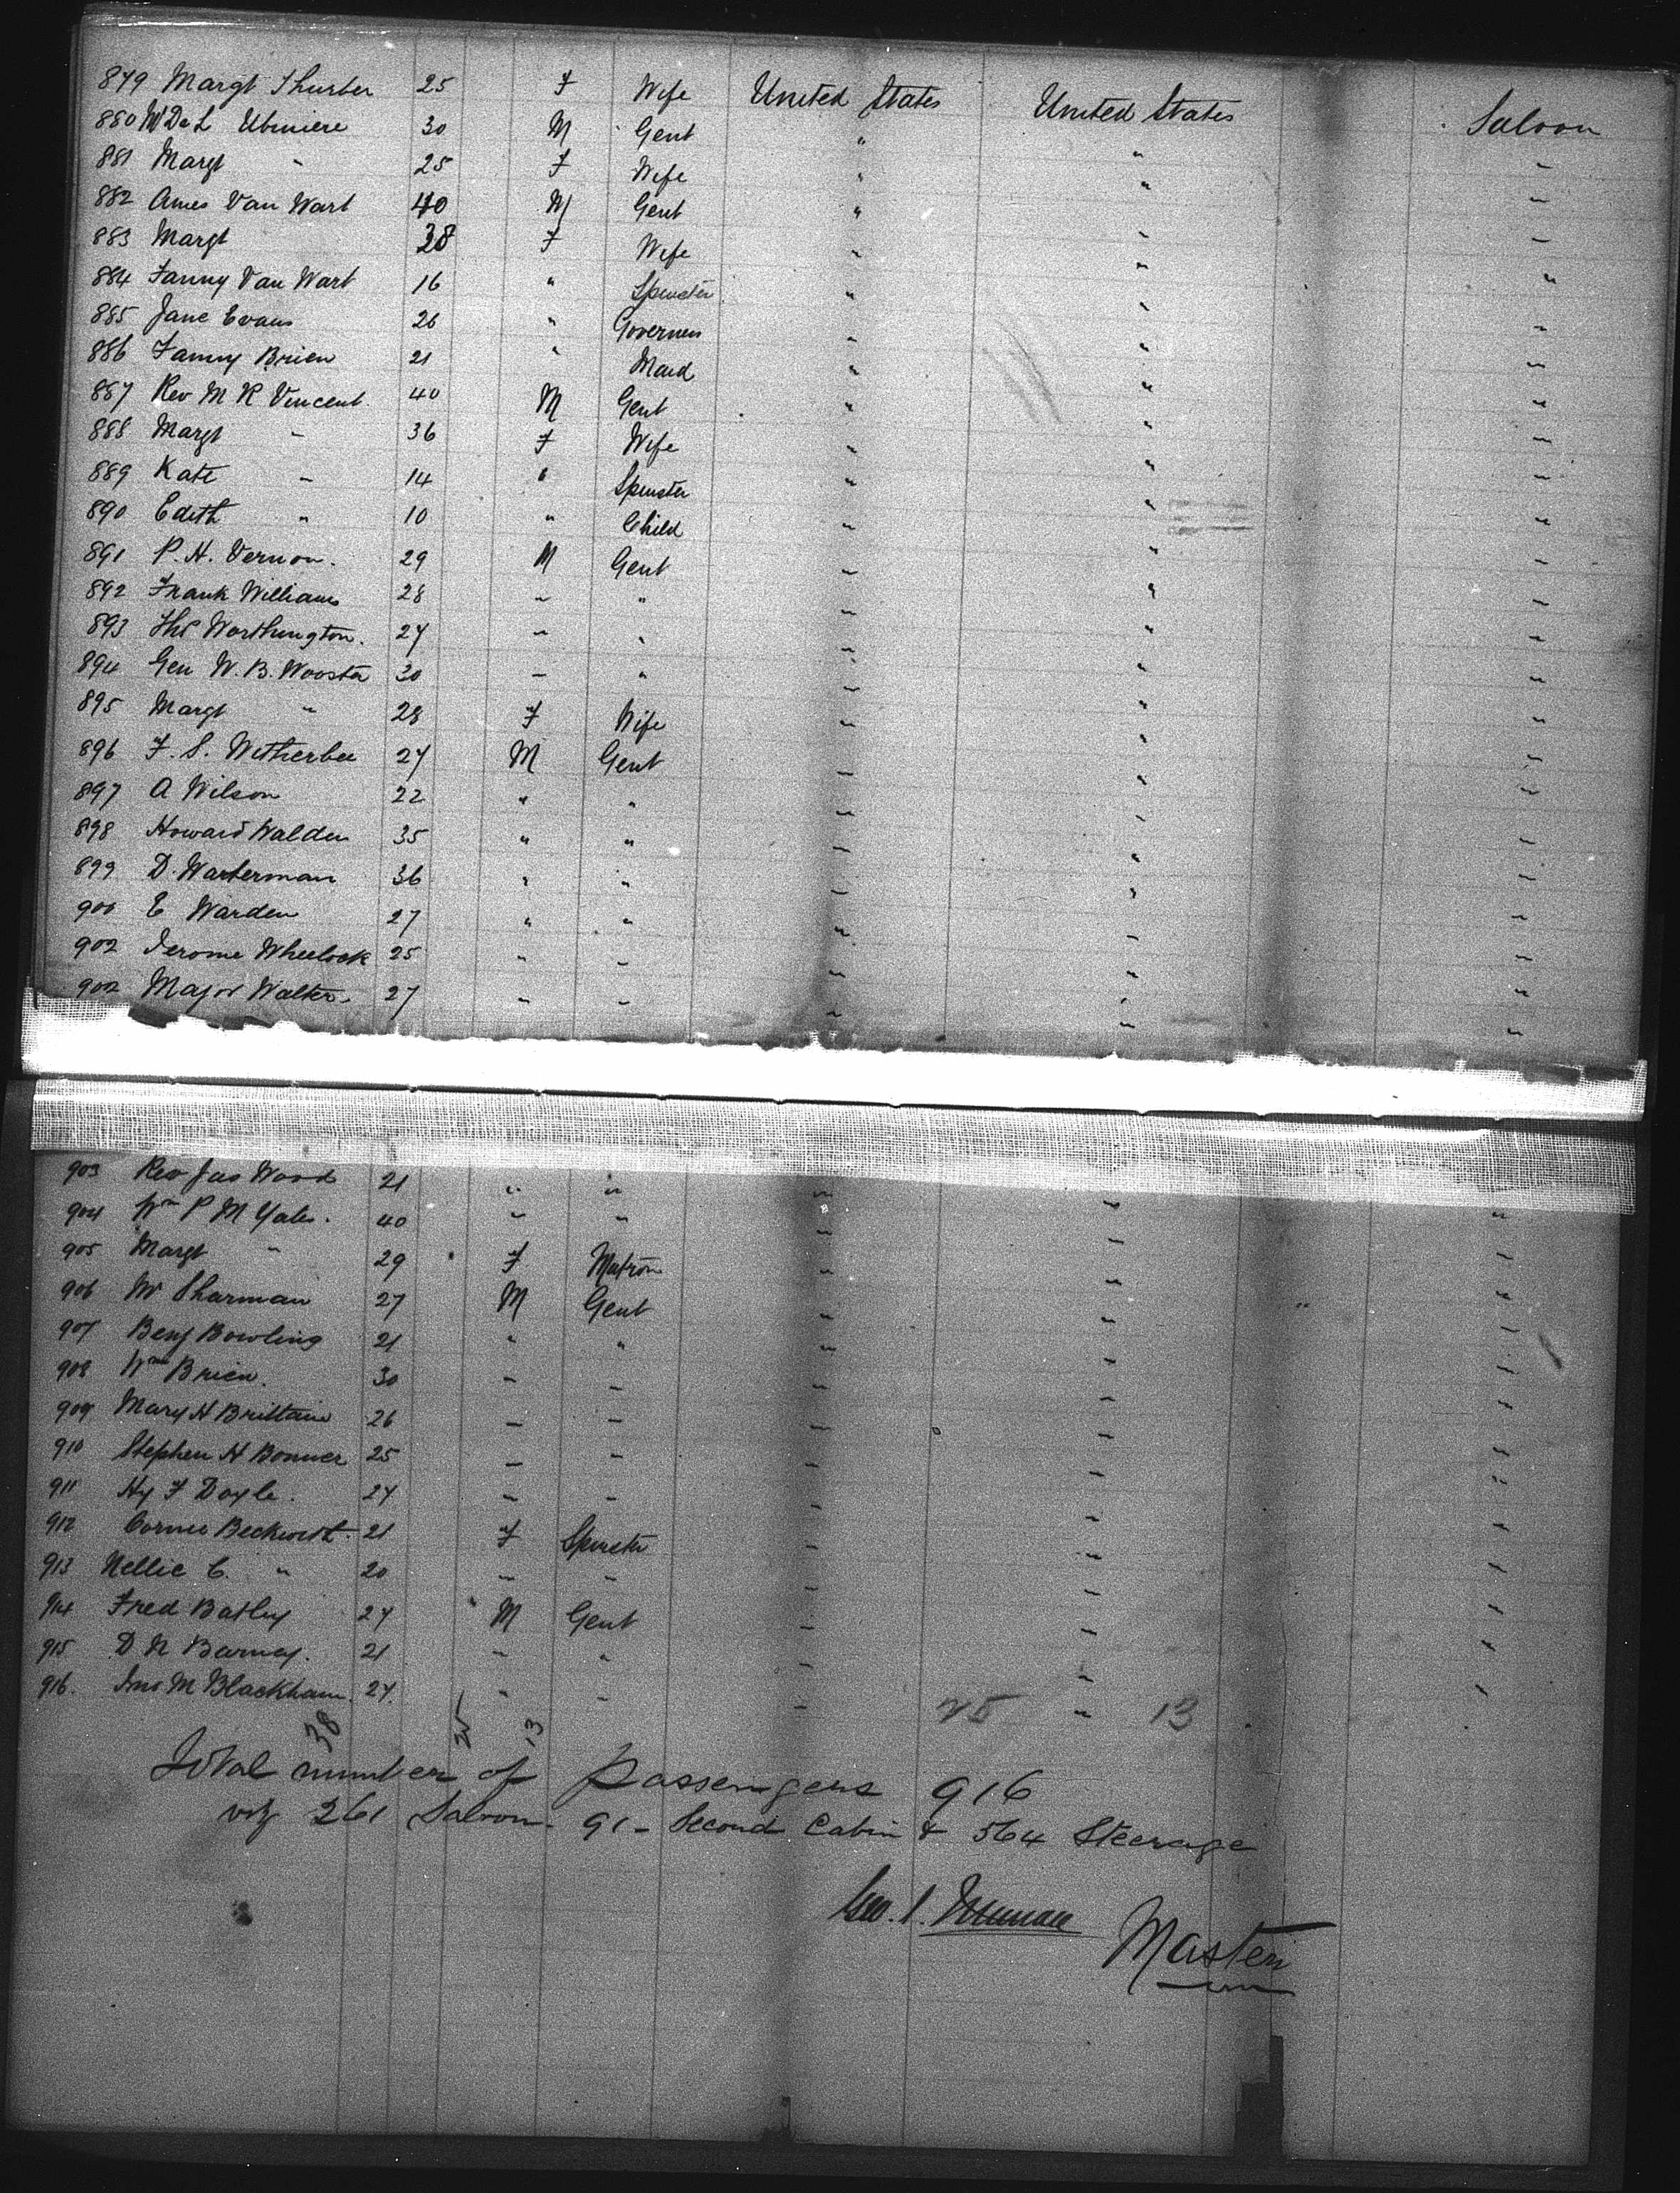 879 Margt Thurber 25 F Wife United States United States Saloon
880 W De L Ubmiere 30 M Gent " " "
881 Margt " 25 F Wife " " "
882 Ames Van Wart 40 M Gent " " "
883 Margt 38 F Wife " " "
884 Fanny Van Wart 16 " Spinster " " "
885 Jane Evans 26 " Governess " " "
886 Fanny Brien 21 " Maid " " "
887 Rev M R Vincent 40 M Gent " " "
888 Margt " 36 F Wife " " "
889 Kate " 14 " Spinster " " "
890 Edith " 10 " Child " " "
891 P. H. Vernon. 29 M Gent " " "
892 Frank Williams 28 " " " " "
893 Ths Worthington. 27 " " " " "
894 Gen W. B. Wooster 30 " " " " "
895 Margt " 28 F Wife " " "
896 F. S. Witherbee 27 M Gent " " "
897 A Wilson 22 " " " " "
898 Howard Walden 35 " " " " "
899 D. Warterman 36 " " " " "
900 E Warden 27 " " " " "
902 Jerome Wheelock 25 " " " " "
902 Major Walter. 27 " " " " "
903 Rev Jas Wood 21 " " " " "
904 Wm P M Yates. 40 " " " " "
905 Margt " 29 F Matron " " "
906 W Sharman 27 M Gent " " "
907 Benj Bowling 21 " " " " "
908 Wm Brien. 30 " " " " "
909 Mary H Brittain 26 " " " " "
910 Stephen H Bonner 25 " " " " "
911 Hy F Doyle. 27 " " " " "
912 Beckwith. 21 F Spinster " " "
913 Nellie C. " 20 " " " " "
914 Fred Batley 27 M Gent " " "
915 D N Barney. 21 " " " " "
916. Jno M Blackham. 27. " " " " "
38 25 13 25 13
Total number of Passengers 916
viz 261 Saloon - 91 - Second Cabin & 564 Steerage
Geo. S.
Master